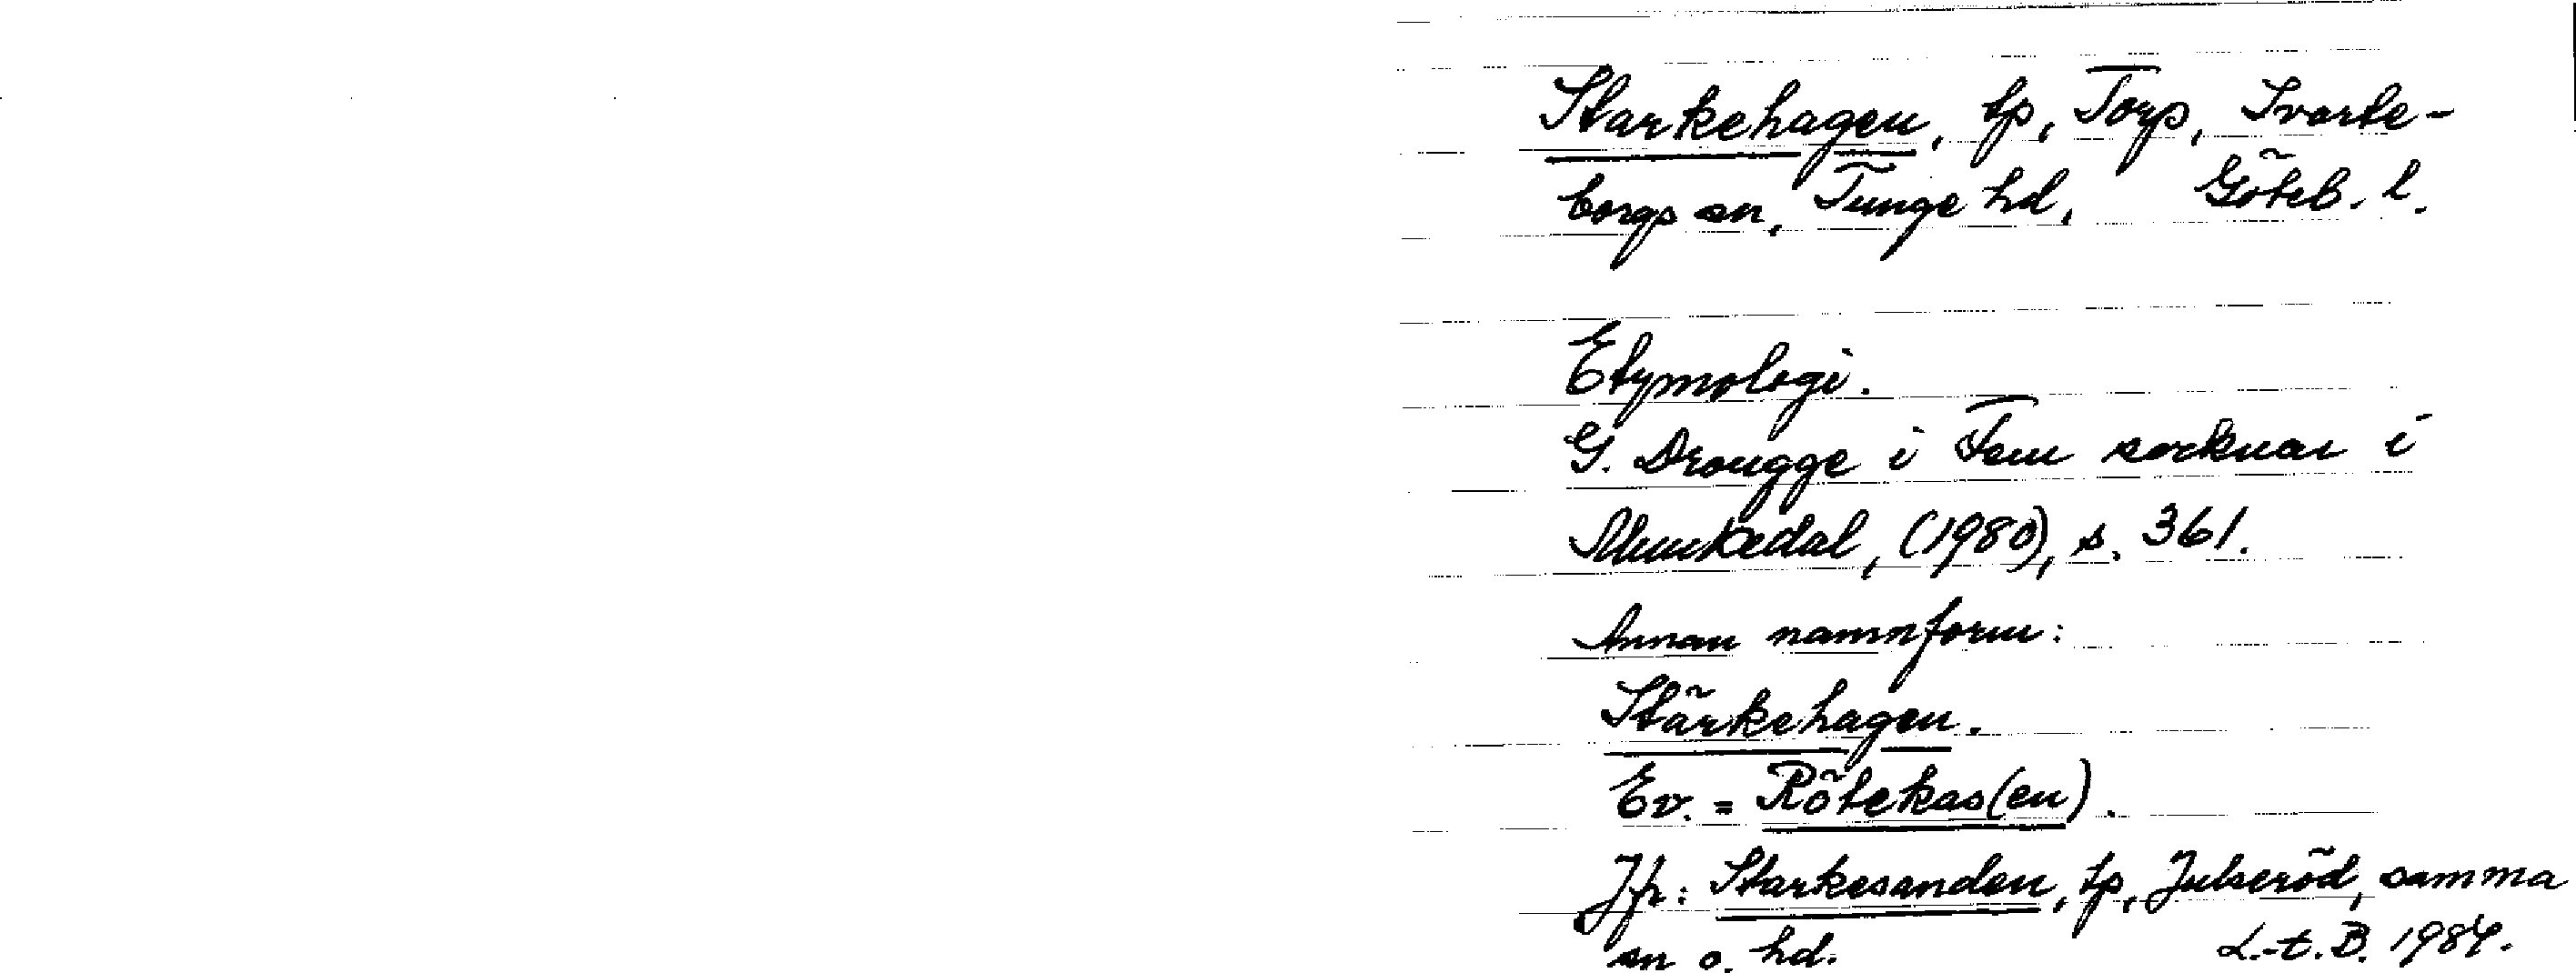 Starkehagen, tp, Torp, Svarte-
borgs sn, Tunge hd, Göteb. l.
Etymologi.
G. Drougge i Fem socknar i
Munkedal, (1980), s. 361.
Annan namnform:
Stärkehagen.
Ev. = Rötekas(en).
Jfr: Starkesanden, tp, Julseröd, samma
sn o. hd. L.-t. B. 1984.